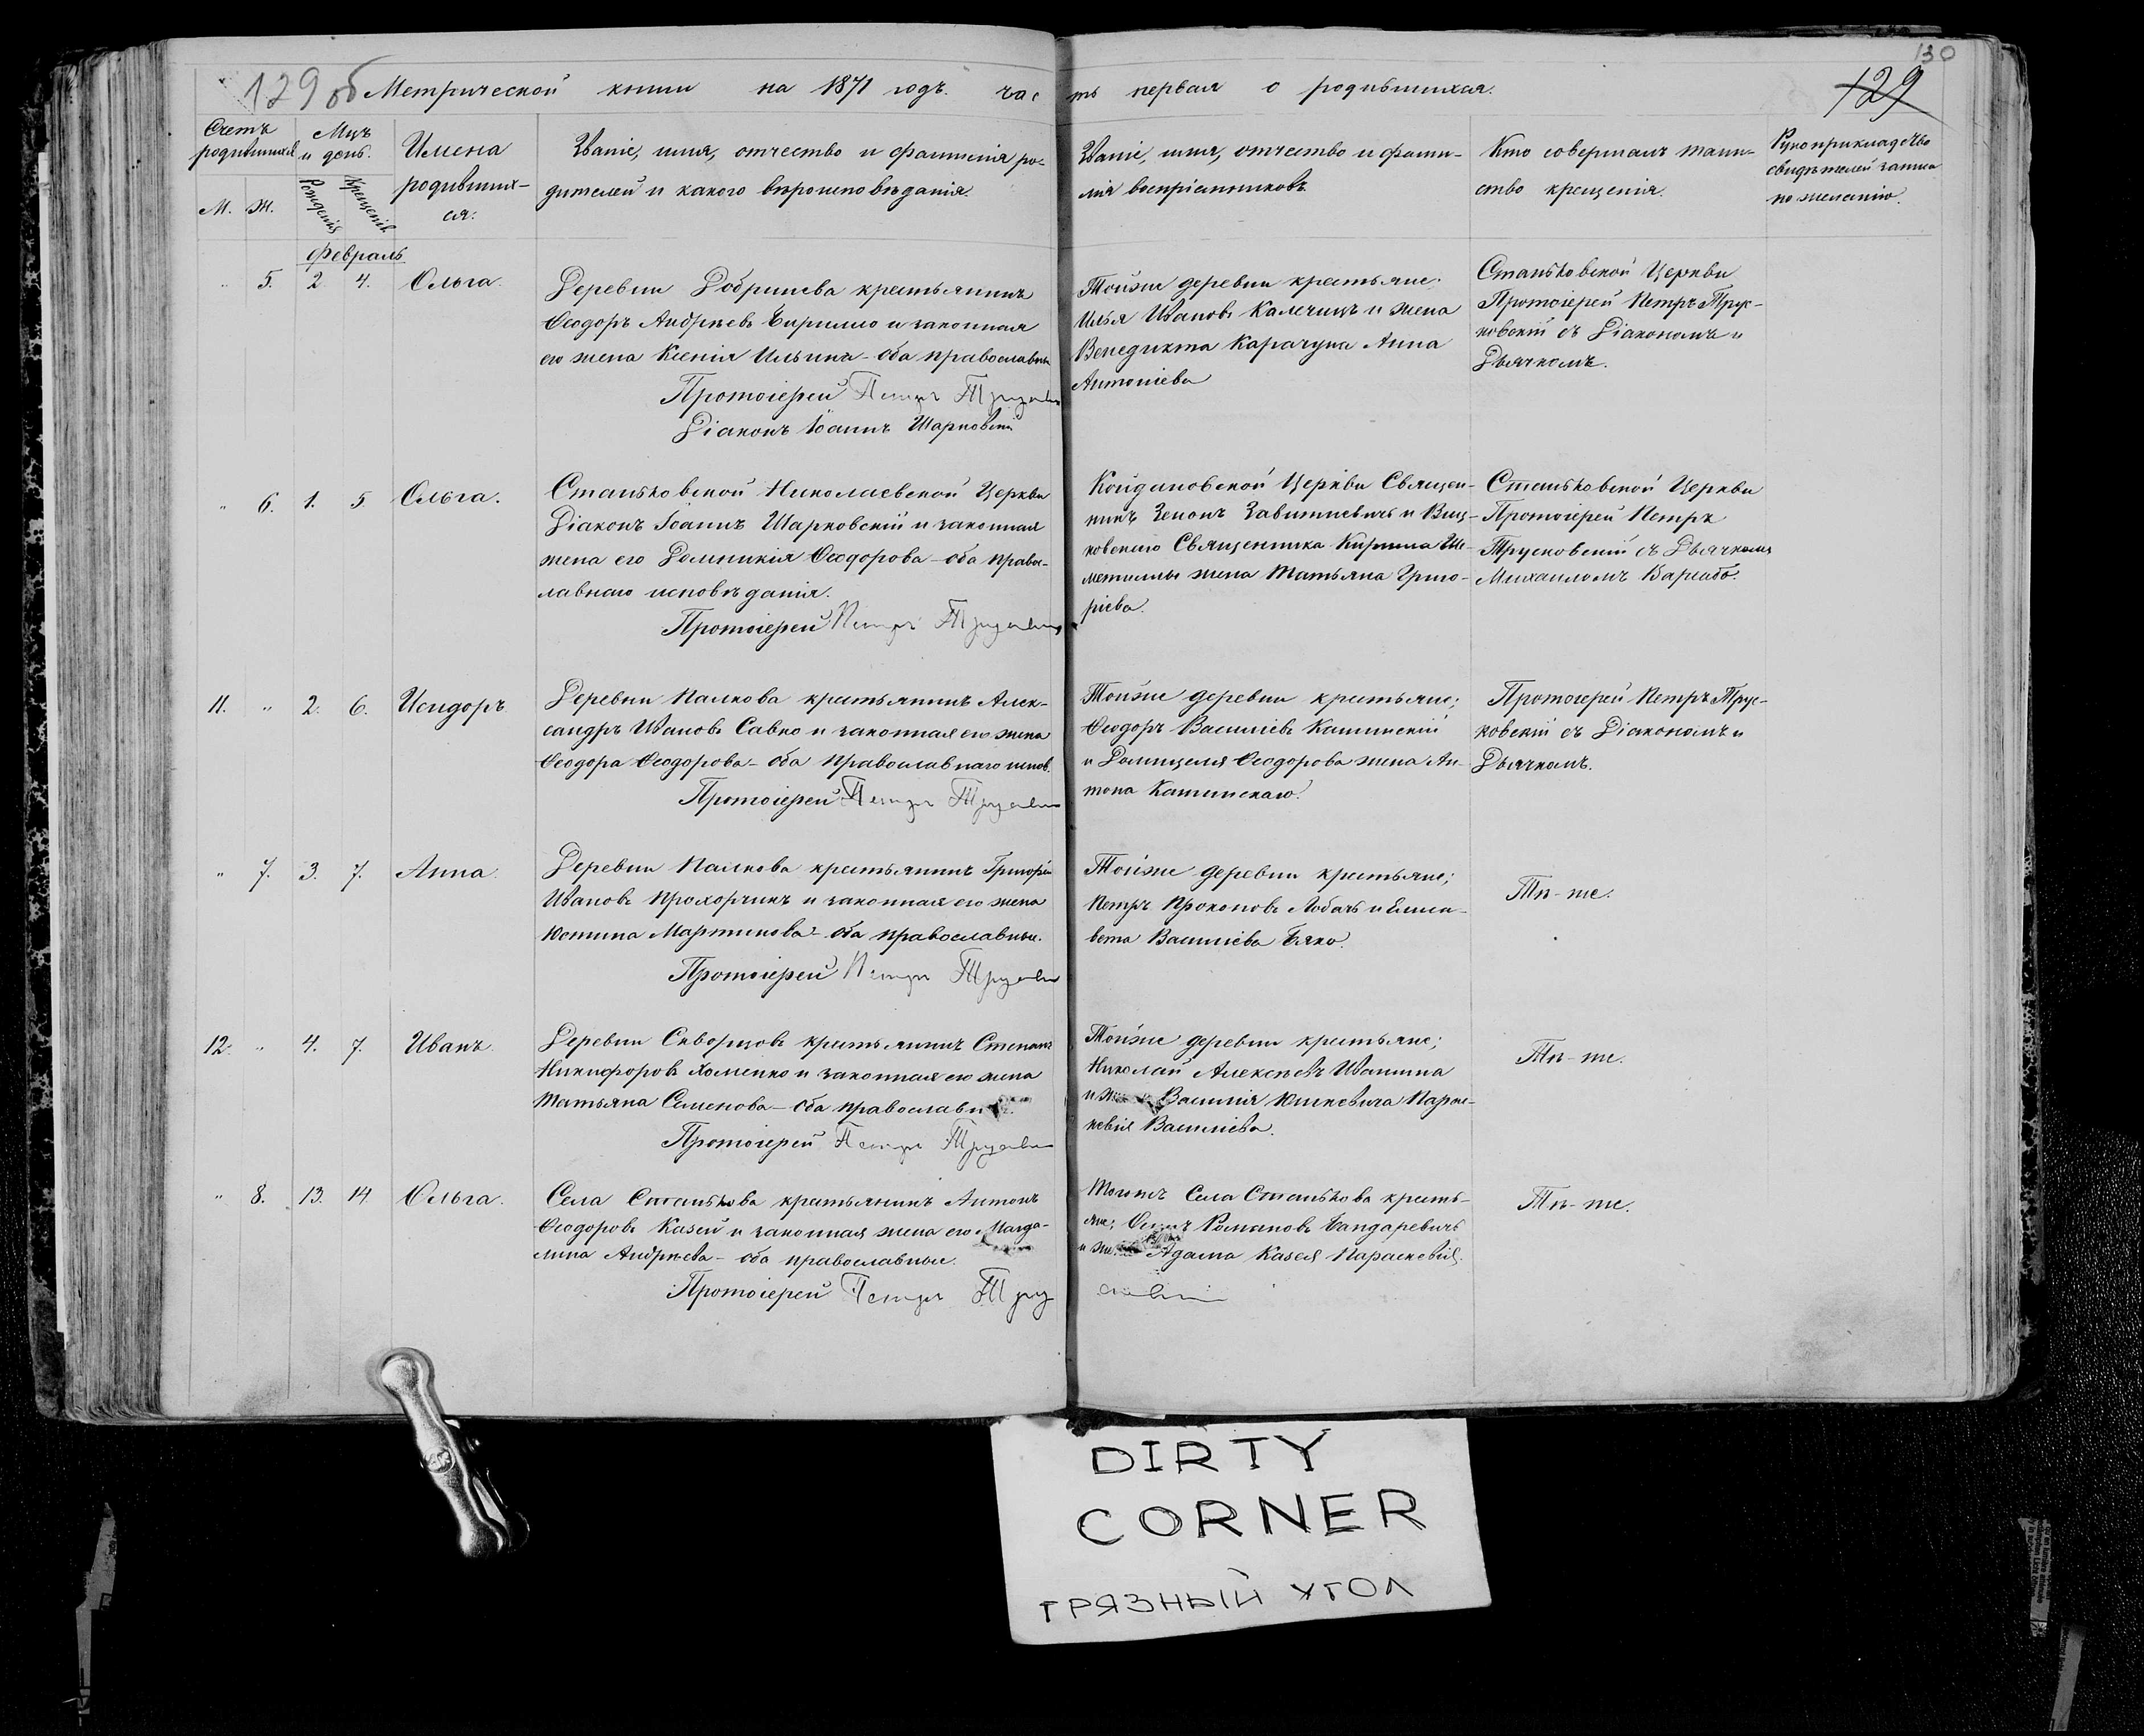 130
129 об Метрической книги на 1871 годъ. часть первая о родившихся.
129
Счетъ родившихся
Мцъ и день.
Имена родивших-ся.
Званіе, имя, отчество и фамилія ро-
дителей и какого вѣроисповѣданія.
Званіе, имя, отчество и фами-
лія воспріемниковъ.
Кто совершалъ таин-
ство крещенія.
Рукоприкладство
свидѣтелей записи
по желанію.
М. Ж. Рожденія Крещенія
Февраль
" 5. 2 4. Ольга.
Деревни Добринева крестьянинъ
Ѳеодоръ Андрѣевъ и законная
его жена Ксенія Ильина - оба православны
Протоіерей Петръ
Діаконъ Іоаннъ Шарковскій
Тойже деревни крестьяне:
Илья Ивановъ Калечицъ и жена
Венедикта Карачуна Анна
Антоніева
Станьковской Церкви
Протоіерей Петръ Трус-
ковскій съ Діакономъ и
Дьячкомъ.
" 6. 1. 5. Ольга.
Станьковской Николаевской Церкви
Діаконъ Іоаннъ Шарковскій и законная
жена его Домникія Ѳеодорова - оба право-
лавнаго исповѣданія.
Протоіерей Петръ
Койдановской Церкви Священ-
никъ Зенонъ Завитневичъ и
ковскаго Священника Кирилла
жена Татьяна Григо-
ріева.
Станьковской Церкви
Протоіерей Петръ
Трусковскій съ Дьячкомъ
Михаиломъ
11. " 2. 6. Исидоръ
Деревни Палкова крестьянинъ Алек-
сандръ Ивановъ Савко и законная его жена
Ѳеодора Ѳеодорова - оба православнаго испов.
Протоіерей Петръ
Тойже деревни крестьяне;
Ѳеодоръ Василіевъ Кашинскій
и Домицеля Ѳеодорова жена Ан-
тона Кашинскаго.
Протоіерей Петръ Трус-
ковскій съ Діакономъ и
Дьячкомъ.
" 7. 3. 7. Анна.
Деревни Палкова крестьянинъ Григорій
Ивановъ Прохорчикъ и законная его жена
Юстина Мартинова - оба православные.
Протоіерей Петръ
Тойже деревни крестьяне;
Петръ Прокоповъ Лобачъ и Елиса-
вета Василіева
Тѣ-же.
12. " 4. 7. Иванъ.
Деревни Скворцовъ крестьянинъ Степанъ
Никифоровъ Хоменко и законная его жена
Татьяна Семенова - оба православн
Протоіерей Петръ
Тойже деревни крестьяне;
Николай Алексѣевъ Ивашина
и Василія Юшкевича Парас-
кевія Василіева.
Тѣ-же.
" 8. 13. 14 Ольга.
Села Станькова крестьянинъ Антонъ
Ѳеодоровъ Казей и законная жена его Магда-
лина Андрѣева - оба православные.
Протоіерей Петръ
Тогожъ Села Станькова кресть-
яне; Романовъ Бандаревичъ
и Адама Казея Параскевія.
Тѣ-же.
DIRTY
CORNER
ГРЯЗНЫЙ УГОЛ